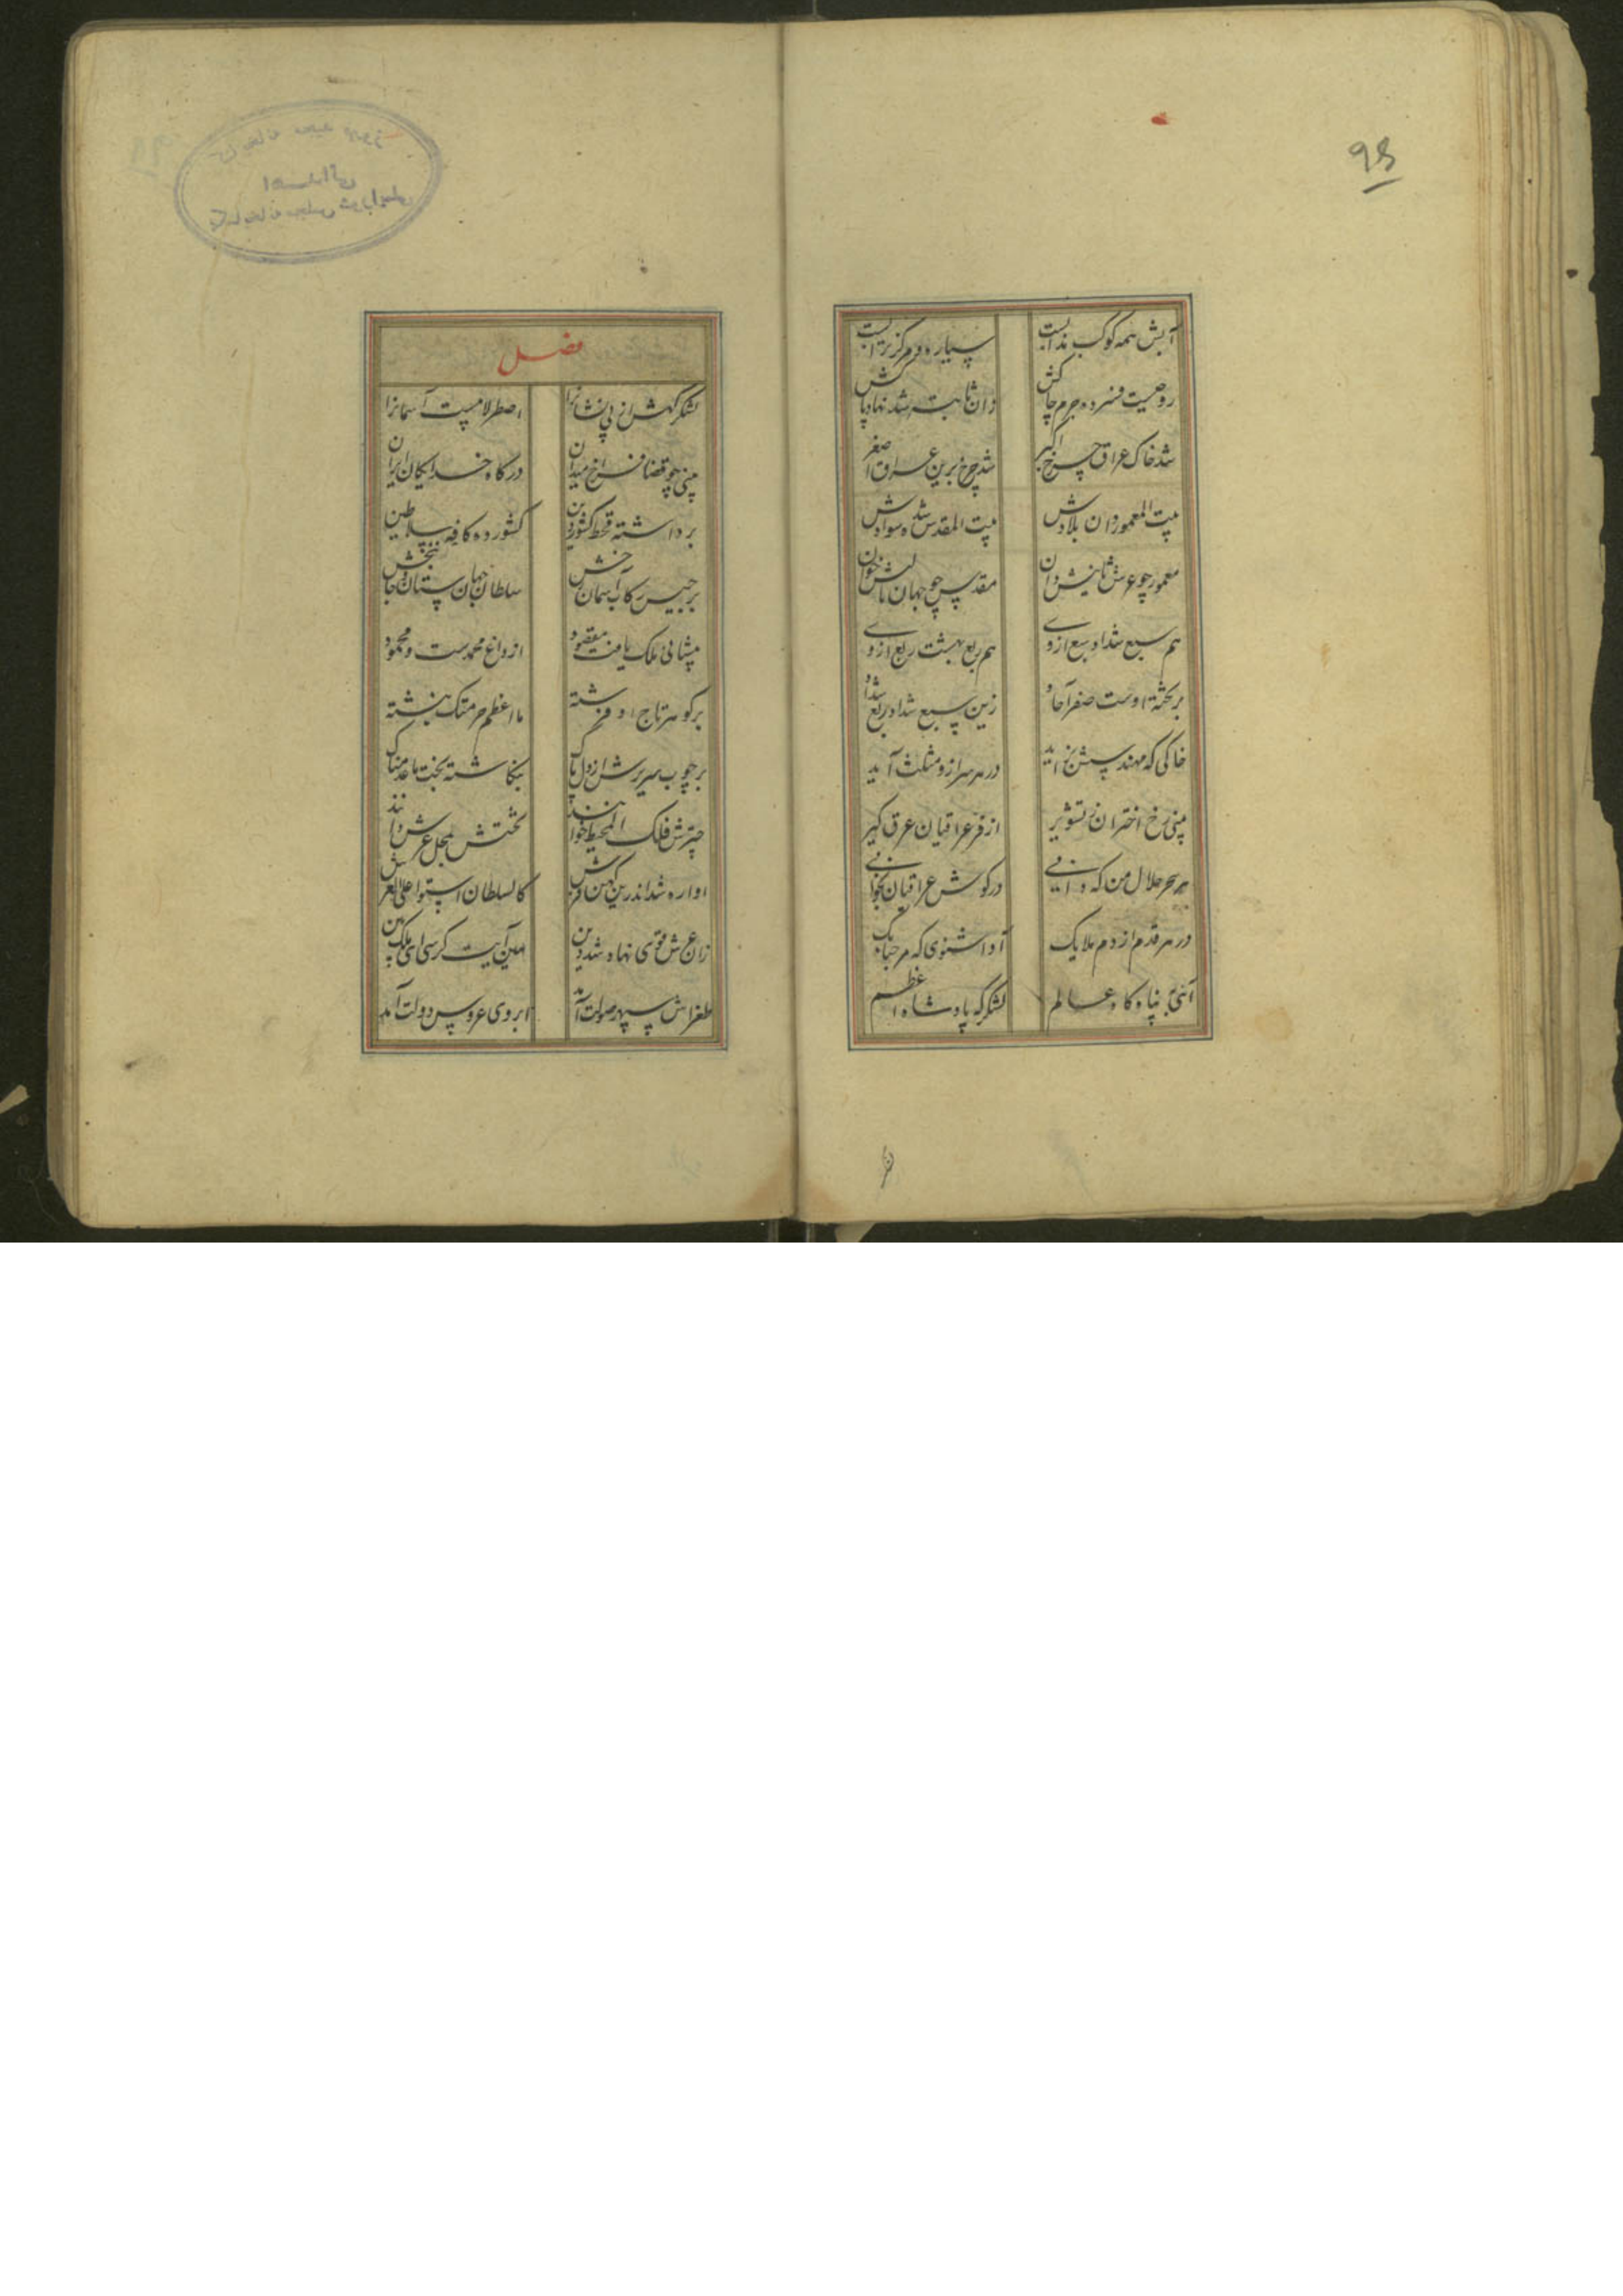 ۹۵
آبش همه کوکب مذابست سیاره و مرکز ترابست
روحیست فسرده جرم خاکش زان ثابته شد نهاد پاکش
شد خاک عراق چرخ اکبر شد چرخ برین عراق اصغر
بیت المعمور زان بلادش بیت المقدس شده سوادش
معمور چو عرش ثانیش دان مقدس چو جهان
هم سبع شداد سبع ازوی هم ربع بهشت ربع ازوی
بر تخته اوست صفر آحاد زین سبع شداد ربع شداد
خاکی که مهندسش نماید در هر سر ازو مثلث آید
بینی رخ اختران ز تشویر از فر عراقیان عرق گیر
هر سحر حلال من که دانی در گوش عراقیان بخوانی
در هر قدم از دم ملایک آوا شنوی که مرحبابک
آئی به پناه گاه عالم لشکرگه پادشاه اعظم
فصل
لشکرگهش از پی نشانرا اصطرلابیست آسمانرا
بینی چو قضا فراخ میدان درگاه خدایگان ایران
برداشته قحط کشور دین کشورده کافه سلاطین
برجیس رکاب آسمان رخش سلطان جهان ستان جان بخش
پیشانی ملک یافت مقصود از داغ محمدست و محمود
بر گوهر تاج او فرشته ما اعظم حرمتک نبشته
بر چوب سریرش از دل پاک بنگاشته بخت ماعدمناک
چترش فلک المحیط خوانند تختش بمحل عرش دانند
آوازه شد اندرین کهن فرش کالسلطان استوا علی العرش
زان عرش قوی نهاد شد دین هین آیت کرسی ای ملک بین
طغراش سپهر صولت آمد ابروی عروس دولت آمد